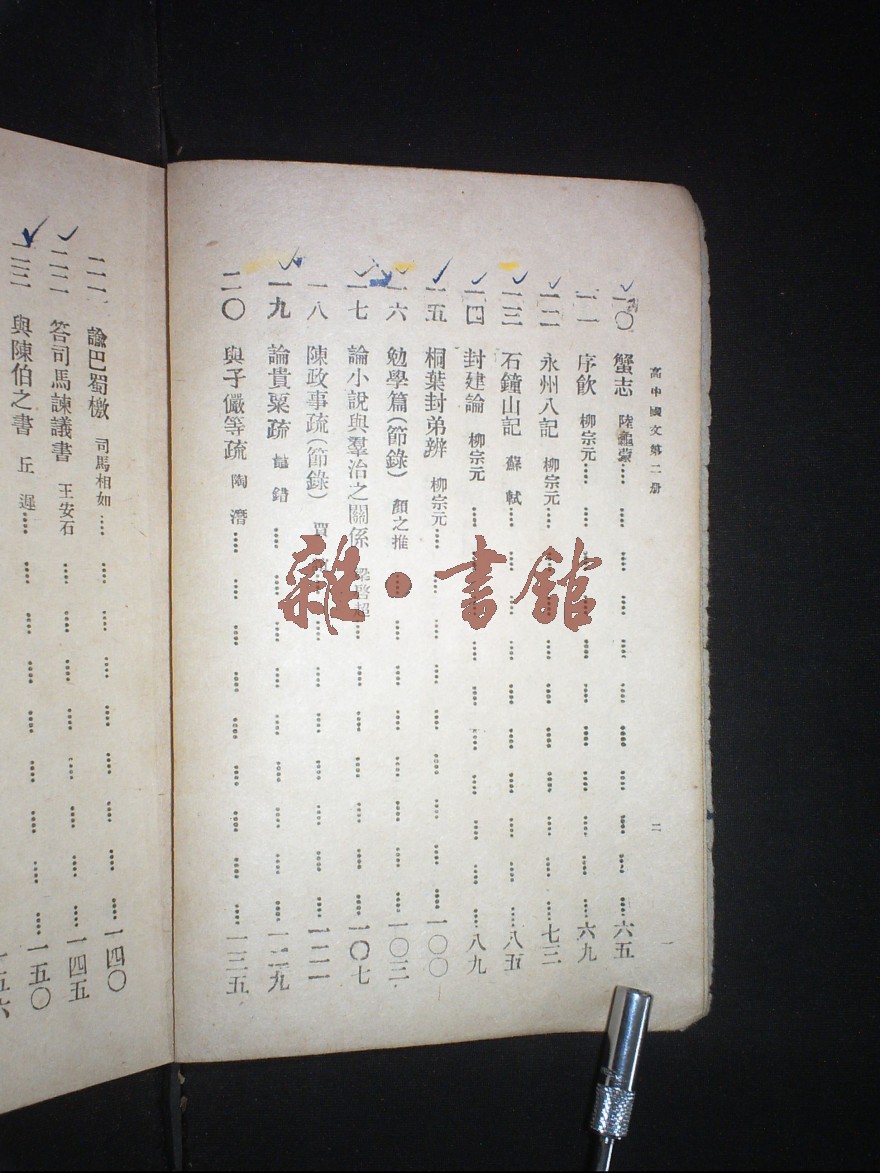 高中國文第二册
二
一〇 蟹志 陸龜蒙 六五
一一 序飲 柳宗元 六九
一二 永州八記 柳宗元 七三
一三 石鐘山記 蘇軾 八五
一四 封建論 柳宗元 八九
一五 桐葉封弟辨 柳宗元 一〇〇
一六 勉學篇(節錄) 顏之推 一〇三
一七 論小說與羣治之關係 梁啓超 一〇七
一八 陳政事疏(節錄) 賈 一二一
一九 論貴粟疏 鼂錯 一二九
二〇 與子儼等疏 陶潛 一三五
二一 諭巴蜀檄 司馬相如 一四〇
二二 答司馬諫議書 王安石 一四五
二三 與陳伯之書 丘遲 一五〇
一五六
雜·書館